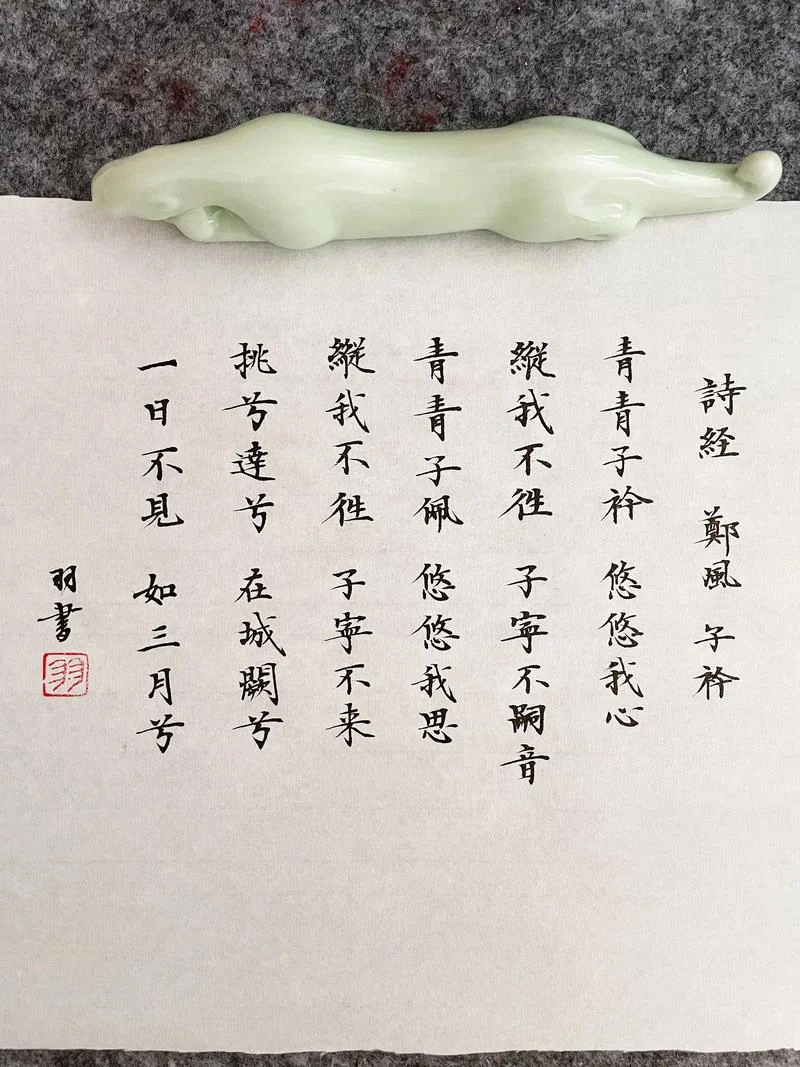 詩経 鄭風 子衿
青青子衿 悠悠我心
縦我不徃 子寧不嗣音
青青子佩 悠悠我思
縦我不徃 子寧不来
挑兮達兮 在城闕兮
一日不見 如三月兮
羽書
羽